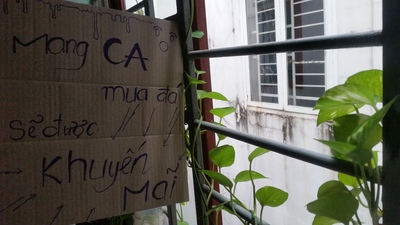 Mang CA
mua đồ
sẽ được
Khuyến
Mãi